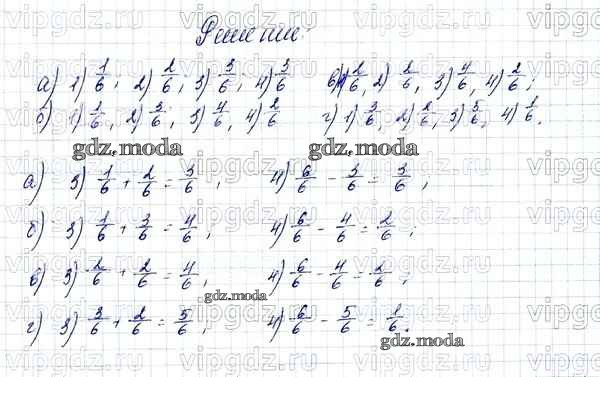 Решение:
а) 1) 1/6; 2) 2/6; 3) 3/6; 4) 3/6 в) 1) 2/6, 2) 2/6, 3) 4/6, 4) 2/6;
б) 1) 1/6, 2) 3/6, 3) 4/6, 4) 2/6 г) 1) 3/6, 2) 2/6, 3) 5/6, 4) 1/6.
gdz.moda gdz.moda
а) 3) 1/6 + 2/6 = 3/6, 4) 6/6 - 3/6 = 3/6;
б) 3) 1/6 + 3/6 = 4/6, 4) 6/6 - 4/6 = 2/6;
в) 3) 2/6 + 2/6 = 4/6, 4) 6/6 - 4/6 = 2/6;
gdz.moda
г) 3) 3/6 + 2/6 = 5/6, 4) 6/6 - 5/6 = 1/6.
gdz.moda
gdz.moda